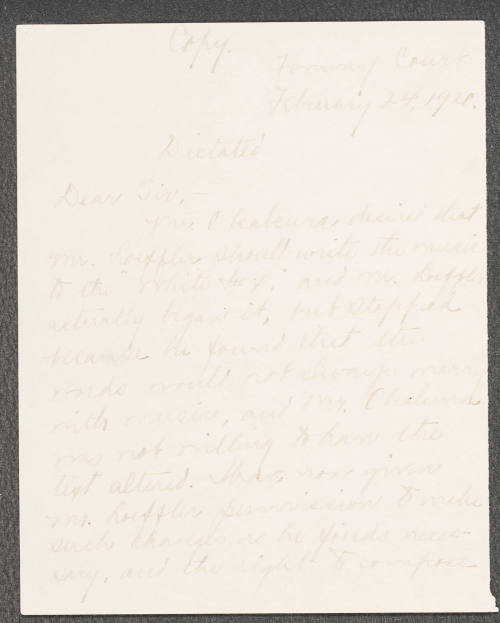 Copy.
Fenway Court
February 24, 19
Dictated
Dear Sir,—
Mr. Okakura desired that
Mr. Loeffler should write the music
to the "White Fox," and Mr. Loeffler
actually began it, but stopped
because he found that the
words would not always marry
with music, and Mr. Okakura
was not willing to have the
text altered. I have now given
Mr. Loeffler permission to make
such changes as he finds neces-
sary, and the right to compose